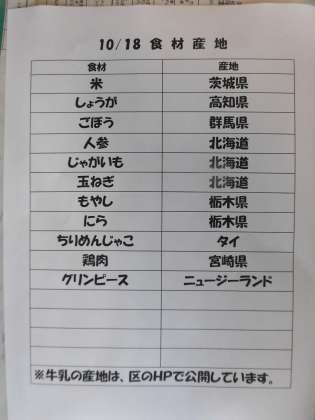 10/18 食材産地
食材 産地
米 茨城県
しょうが 高知県
ごぼう 群馬県
人参 北海道
じゃがいも 北海道
玉ねぎ 北海道
もやし 栃木県
にら 栃木県
ちりめんじゃこ タイ
鶏肉 宮崎県
グリンピース ニュージーランド
※牛乳の産地は、区のHPで公開しています。